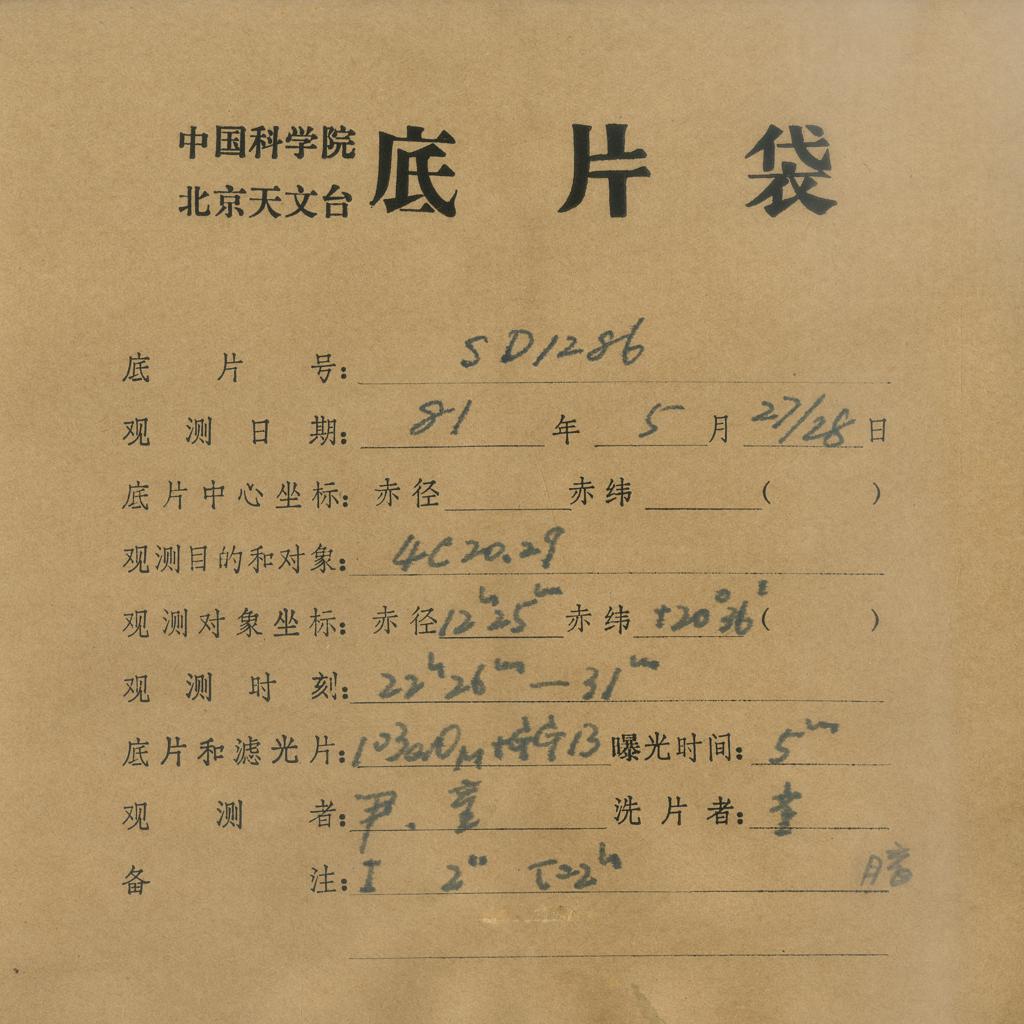 中国科学院
北京天文台
底片袋
底片号: SD1286
观测日期: 81年 5月 27/28日
底片中心坐标: 赤径 赤纬 ( )
观测目的和对象: 4C20.29
观测对象坐标: 赤径 12h25m 赤纬 +20°36′ ( )
观测时刻: 22h26m—31m
底片和滤光片: 103aO_M+GG13 曝光时间: 5m
观测者: 尹.
洗片者:
备注: I 2" t=22h